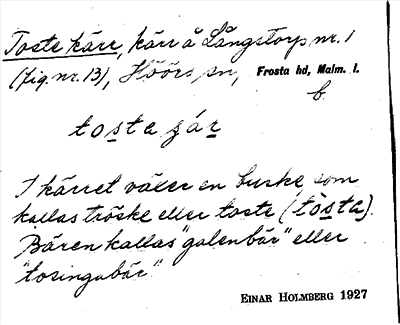 Toste kärr, kärr å Långstorp nr. 1
(fig. nr. 13), Höörs sn, Frosta hd, Malm. l.
b.
tosta ɟár
I kärret växer en buske, som
kallas tröske eller toste (tòsta).
Bären kallas "galenbär" eller
"tosingabär".
EINAR HOLMBERG 1927